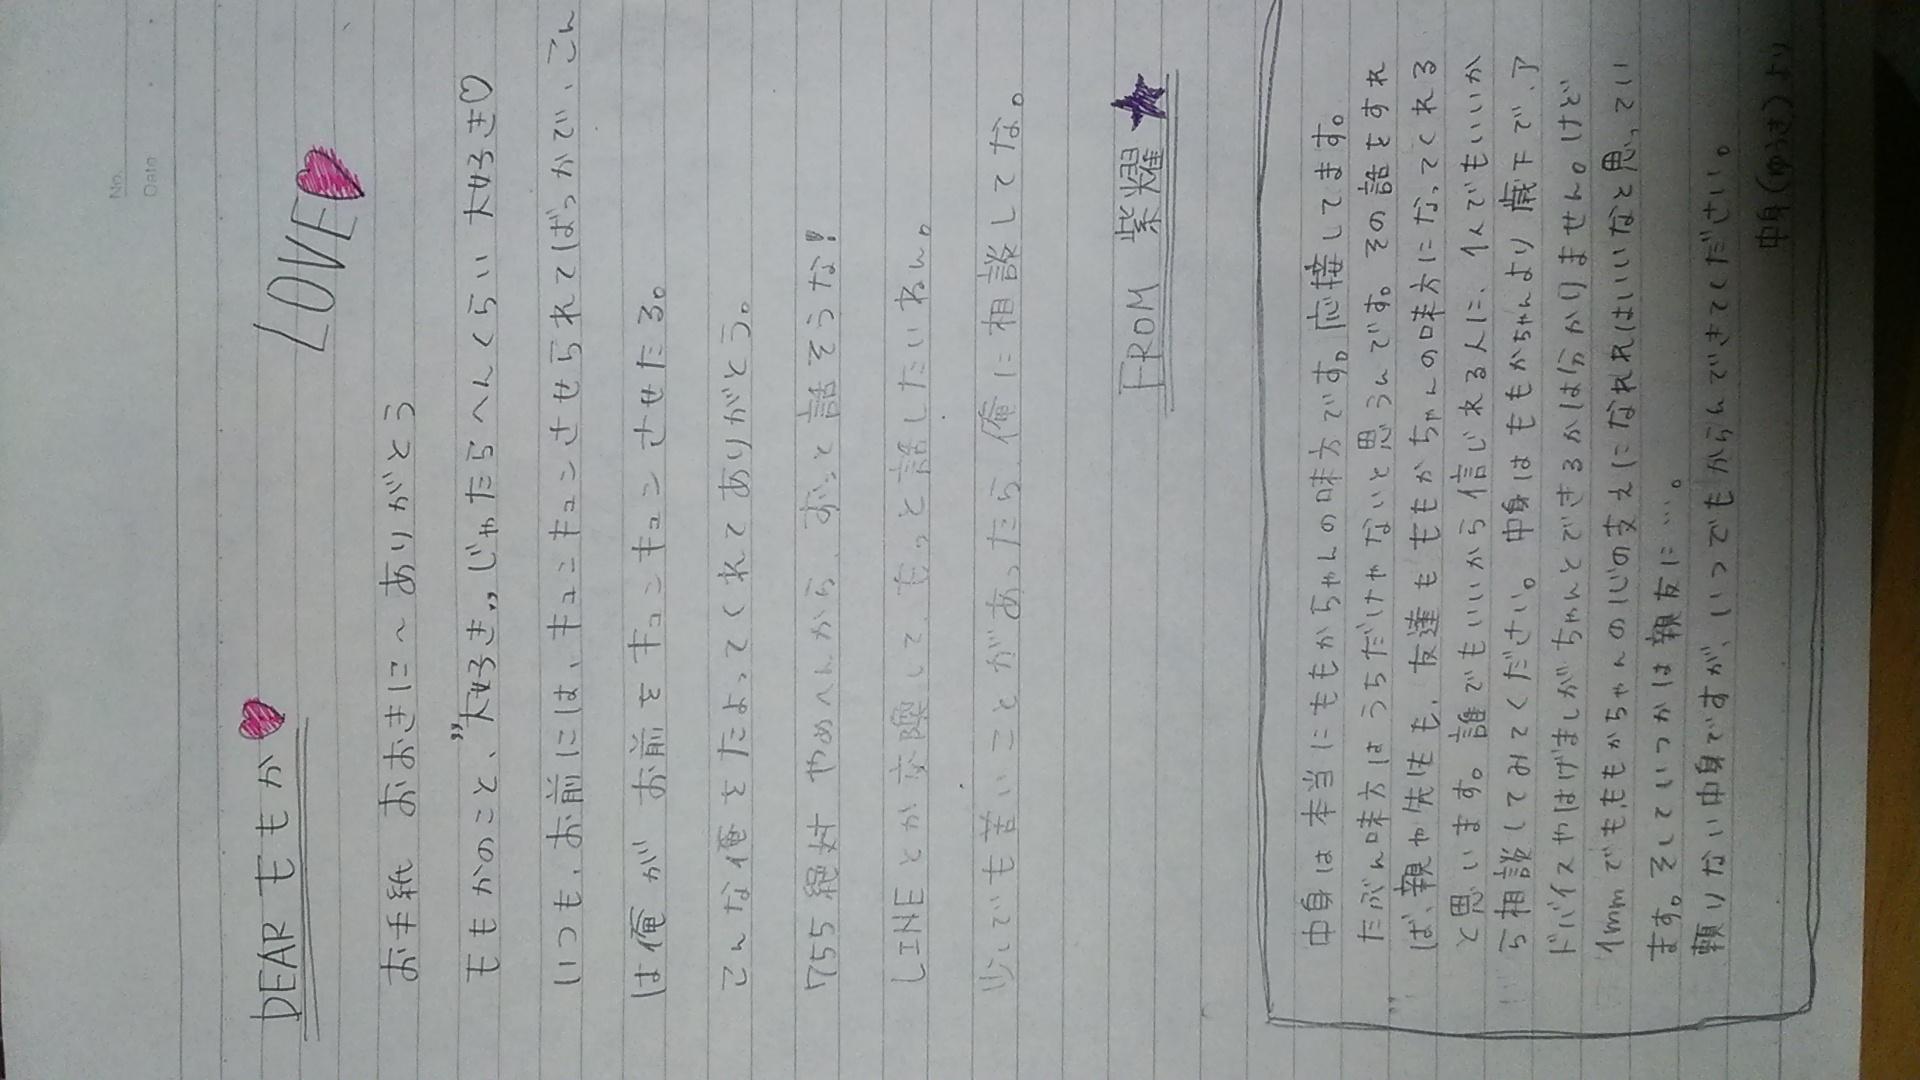 No.
Date
LOVE
DEAR ももか
お手紙 おおきに〜ありがとう
ももかのこと、"大好き"じゃたらへんくらい大好き♡
いつも、お前には、キュンキュンさせられてばっかで、こん
は俺が お前をキュンキュンさせたる。
こんな俺をたよってくれてありがとう。
755 絶対 やめへんから、ずっと話そうな!
LINEとか交換して、もっと話したいねん。
少しでも苦いことがあったら、俺に相談してな。
FROM 紫耀★
中身は本当にももかちゃんの味方です。応接してます。
たぶん味方はうちだけやないと思うんです。その話をすれ
ば、親や先生も、友達もももかちゃんの味方になってくれる
と思います。誰でもいいから信じれる人に、1人でもいいか
ら相談してみてください。中身はももかちゃんより歳下で、ア
ドバイスやはげましがちゃんとできるかは分かりません。けど
1mmでもももかちゃんの心の支えになればいいなと思ってい
ます。そしていつかは親友に…。
頼りない中身ですが、いつでもからんできてください。
中身(ゆうき)より